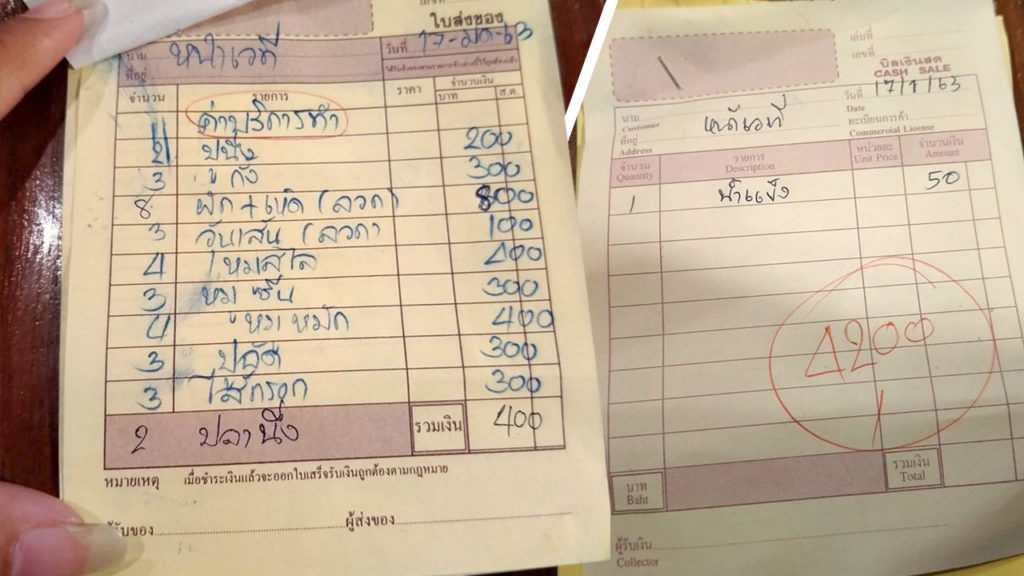 ใบส่งของ
นาม หน้าเวที
ที่อยู่
วันที่ 17-มค-63
จำนวน รายการ ราคา จำนวนเงิน
บาท ส.ต.
ค่าบริการทำ
200
3 กุ้ง 300
8 ผัก + เห็ด (ลวก) 800
3 วุ้นเส้น (ลวก) 100
4 400
3 300
4 หมูหมัก 400
3 300
3 ไส้กรอก 300
2 ปลานึ่ง รวมเงิน 400
หมายเหตุ เมื่อชำระเงินแล้วจะออกใบเสร็จรับเงินถูกต้องตามกฎหมาย
ผู้รับของ ผู้ส่งของ
เล่มที่
เลขที่
บิลเงินสด
CASH SALE
วันที่ 17/1/63
Date
นาม หน้าเวที
Customer
ทะเบียนการค้า
Commercial License
ที่อยู่
Address
จำนวน รายการ หน่วยละ จำนวนเงิน
Quantity Description Unit Price Amount
1 น้ำแข็ง 50
4200
บาท รวมเงิน
Baht Total
ผู้รับเงิน
Collector